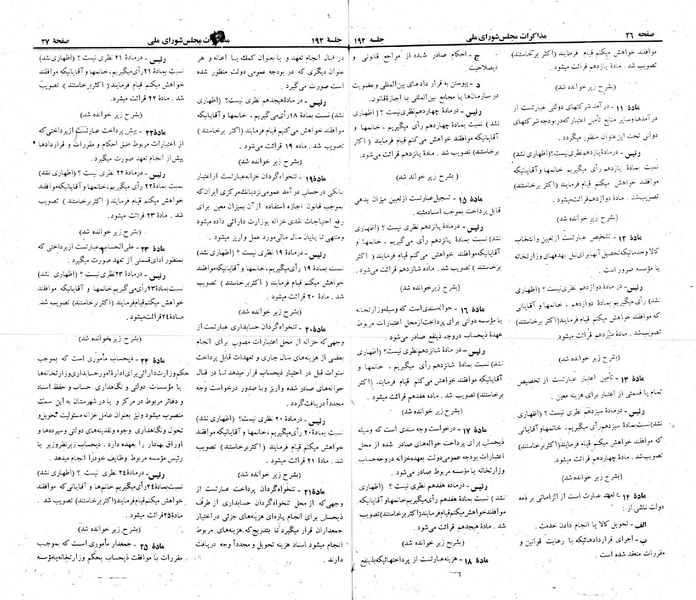 صفحه ۲۶
مذاکرات مجلس شورای ملی
جلسه ۱۹۳
موافقند خواهش میکنم قیام فرمایند (اکثر برخاستند)
تصویب شد . مادهٔ یازدهم قرائت میشود .
(بشرح زیر خوانده شد)
مادهٔ ۱۱ - درآمد شرکتهای دولتی عبارتست از
درآمدها و سایر منابع تأمین اعتبار که در بودجه شرکتهای
دولتی تحت این عنوان منظور میگردد .
رئیس - درمادهٔ یازدهم نظری نیست؟ (اظهاری نشد)
نسبت بمادهٔ یازدهم رأی میگیریم، خانمها و آقایانیکه
موافقند خواهش میکنم قیام فرمایند (اکثر برخاستند)
تصویب شد . مادهٔ دوازدهم قرائت میشود .
(بشرح زیر خوانده شد)
مادهٔ ۱۲ - تشخیص عبارتست از تعیین و انتخاب
کالا و خدمتی که تحصیل آنها برای نیل بهدفهای وزارتخانه
یا مؤسسه ضرور است .
رئیس - در مادهٔ دوازدهم نظری نیست؟ (اظهاری
نشد) رأی میگیریم بمادهٔ دوازدهم ، خانمها و آقایانی
که موافقند خواهش میکنم قیام فرمایند (اکثر برخاستند)
تصویب شد . مادهٔ سیزدهم قرائت میشود .
(بشرح زیر خوانده شد)
مادهٔ ۱۳ - تأمین اعتبار عبارتست از تخصیص
تمام یا قسمتی از اعتبار برای هزینه معین .
رئیس - درمادهٔ سیزدهم نظری نیست؟ (اظهاری
نشد) نسبت بمادهٔ سیزدهم رأی میگیریم، خانمها و آقایانیکه
موافقند خواهش میکنم قیام فرمایند (اکثر برخاستند)
تصویب شد . مادهٔ چهاردهم قرائت میشود .
(بشرح زیر خوانده شد)
مادهٔ ۱۴ - تعهد عبارت است از الزاماتی بر ذمه
دولت ناشی از :
الف - تحویل کالا یا انجام دادن خدمت .
ب - اجرای قراردادهائی که با رعایت قوانین و
مقررات منعقد شده است .
ج - احکام صادر شده از مراجع قانونی و
ذیصلاحیت .
د - پیوستن به قراردادهای بین‌المللی و عضویت
در سازمانها یا مجامع بین‌المللی با اجازه قانون .
رئیس - درمادهٔ چهاردهم نظری نیست؟ (اظهاری
نشد) نسبت بمادهٔ چهاردهم رأی میگیریم ، خانمها و
آقایانیکه موافقند خواهش میکنم قیام فرمایند (اکثر
برخاستند) تصویب شد . مادهٔ پانزدهم قرائت میشود .
(بشرح زیر خوانده شد)
مادهٔ ۱۵ - تسجیل عبارتست از تعیین میزان بدهی
قابل پرداخت بموجب اسناد مثبته .
رئیس - درمادهٔ پانزدهم نظری نیست؟ (اظهاری نشد)
نسبت بمادهٔ پانزدهم رأی میگیریم ، خانمها و
آقایانیکه موافقند خواهش میکنم قیام فرمایند (اکثر
برخاستند) تصویب شد . مادهٔ شانزدهم قرائت میشود .
(بشرح زیر خوانده شد)
مادهٔ ۱۶ - حواله سندی است که وسیله وزارتخانه
یا مؤسسه دولتی برای پرداخت از محل اعتبارات مربوط
عهده ذیحساب در وجه ذینفع صادر میشود .
رئیس - درمادهٔ شانزدهم نظری نیست؟ (اظهاری
نشد) نسبت بمادهٔ شانزدهم رأی میگیریم ، خانمها و
آقایانیکه موافقند خواهش میکنم قیام فرمایند (اکثر
برخاستند) تصویب شد . مادهٔ هفدهم قرائت میشود .
(بشرح زیر خوانده شد)
مادهٔ ۱۷ - درخواست وجه سندی است که وسیله
ذیحساب برای پرداخت حواله‌های صادر شده از محل
اعتبارات بودجه عمومی دولت بعهده خزانه در وجه حساب
وزارتخانه یا مؤسسه مربوط صادر میشود .
رئیس - درمادهٔ هفدهم نظری نیست؟ (اظهاری
نشد) نسبت بمادهٔ هفدهم رأی میگیریم، خانمها و آقایانیکه
موافقند خواهش میکنم قیام فرمایند (اکثر برخاستند) تصویب
شد . مادهٔ هیجدهم قرائت میشود .
(بشرح زیر خوانده شد)
مادهٔ ۱۸ - هزینه عبارتست از پرداختهائیکه بذینفع
جلسه ۱۹۳
مذاکرات مجلس شورای ملی
صفحهٔ ۲۷
در قبال انجام تعهد و یا بعنوان کمک یا اعانه و هر
عنوان دیگری که در بودجه عمومی دولت منظور شده
است صورت میگیرد .
رئیس - درمادهٔ هیجدهم نظری نیست؟ (اظهاری
نشد) نسبت بمادهٔ ۱۸ رأی میگیریم، خانمها و آقایانیکه
موافقند خواهش میکنم قیام فرمایند (اکثر برخاستند)
تصویب شد . ماده ۱۹ قرائت میشود .
(بشرح زیر خوانده شد)
مادهٔ ۱۹ - تنخواه گردان خزانه عبارتست از اعتبار
بانکی در حساب درآمد عمومی نزد بانک مرکزی ایران که
بموجب قانون اجازه استفاده از آن بمیزان معین برای
رفع احتیاجات نقدی خزانه بوزارت دارائی داده میشود
و منتهی تا پایان سال مالی مورد عمل واریز میشود .
رئیس - درمادهٔ ۱۹ نظری نیست؟ (اظهاری نشد)
نسبت بمادهٔ ۱۹ رأی میگیریم، خانمها و آقایانیکه موافقند
خواهش میکنم قیام فرمایند (اکثر برخاستند) تصویب
شد . مادهٔ ۲۰ قرائت میشود .
(بشرح زیر خوانده شد)
مادهٔ ۲۰ - تنخواه گردان حسابداری عبارتست از
وجهی که خزانه از محل اعتبارات مصوب برای انجام
بعضی از هزینه‌های سال جاری و تعهدات قابل پرداخت
سنوات قبل در اختیار ذیحساب قرار میدهد تا در قبال
حواله‌های صادر شده واریز و با صدور درخواست وجه
مجدداً دریافت گردد .
رئیس - درمادهٔ ۲۰ نظری نیست؟ (اظهاری نشد)
نسبت بمادهٔ ۲۰ رأی میگیریم، خانمها و آقایانیکه موافقند
خواهش میکنم قیام فرمایند (اکثر برخاستند) تصویب
شد . مادهٔ ۲۱ قرائت میشود .
(بشرح زیر خوانده شد)
مادهٔ ۲۱ - تنخواه گردان پرداخت عبارتست از
وجهی که از محل تنخواه گردان حسابداری از طرف
ذیحساب برای انجام پاره‌ای هزینه‌های جزئی در اختیار
جمعداران قرار میگیرد تا بتدریج که هزینه‌های مربوط
انجام میشود اسناد هزینه تحویل و مجدداً وجه دریافت
دارند .
رئیس - درمادهٔ ۲۱ نظری نیست ؟ (اظهاری نشد)
نسبت بمادهٔ ۲۱ رأی میگیریم، خانمها و آقایانیکه موافقند
خواهش میکنم قیام فرمایند (اکثر برخاستند) تصویب
شد . ماده ۲۲ قرائت میشود .
(بشرح زیر خوانده شد)
مادهٔ ۲۲ - پیش پرداخت عبارتست از پرداختی که
از اعتبارات مربوط طبق احکام و مقررات و قراردادها
پیش از انجام تعهد صورت میگیرد .
رئیس - درمادهٔ ۲۲ نظری نیست؟ (اظهاری نشد)
نسبت بمادهٔ ۲۲ رأی میگیریم، خانمها و آقایانیکه موافقند
خواهش میکنم قیام فرمایند (اکثر برخاستند) تصویب
شد . مادهٔ ۲۳ قرائت میشود .
(بشرح زیر خوانده شد)
مادهٔ ۲۳ - علی‌الحساب عبارتست از پرداختی که
بمنظور ادای قسمتی از تعهد صورت میگیرد .
رئیس - درمادهٔ ۲۳ نظری نیست؟ (اظهاری نشد)
نسبت بمادهٔ ۲۳ رأی میگیریم، خانمها و آقایانیکه موافقند
خواهش میکنم قیام فرمایند (اکثر برخاستند) تصویب شد .
مادهٔ ۲۴ قرائت میشود .
(بشرح زیر خوانده شد)
مادهٔ ۲۴ - ذیحساب مأموری است که بموجب
حکم وزارت دارائی برای ادارهٔ امور حسابداری وزارتخانه‌ها
یا مؤسسات دولتی و نگاهداری حساب و حفظ اسناد
و دفاتر مربوط در مرکز و یا در شهرستان به این سمت
منصوب میشود و نیز بعنوان عامل خزانه مسئولیت تحویل و
تحول و نگاهداری وجوه و نقدینه‌های دولتی و سپرده‌ها و
اوراق بهادار را بعهده دارد . ذیحساب زیر نظر وزیر یا
رئیس مؤسسه مربوط وظایف خود را انجام میدهد .
رئیس - درمادهٔ ۲۴ نظری نیست ؟ (اظهاری نشد)
نسبت بمادهٔ ۲۴ رأی میگیریم، خانمها و آقایانی که موافقند
خواهش میکنم قیام فرمایند (اکثر برخاستند) تصویب شد .
مادهٔ ۲۵ قرائت میشود .
(بشرح زیر خوانده شد)
مادهٔ ۲۵ - جمعدار مأموری است که بموجب
مقررات با موافقت ذیحساب بحکم وزارتخانه یا مؤسسه